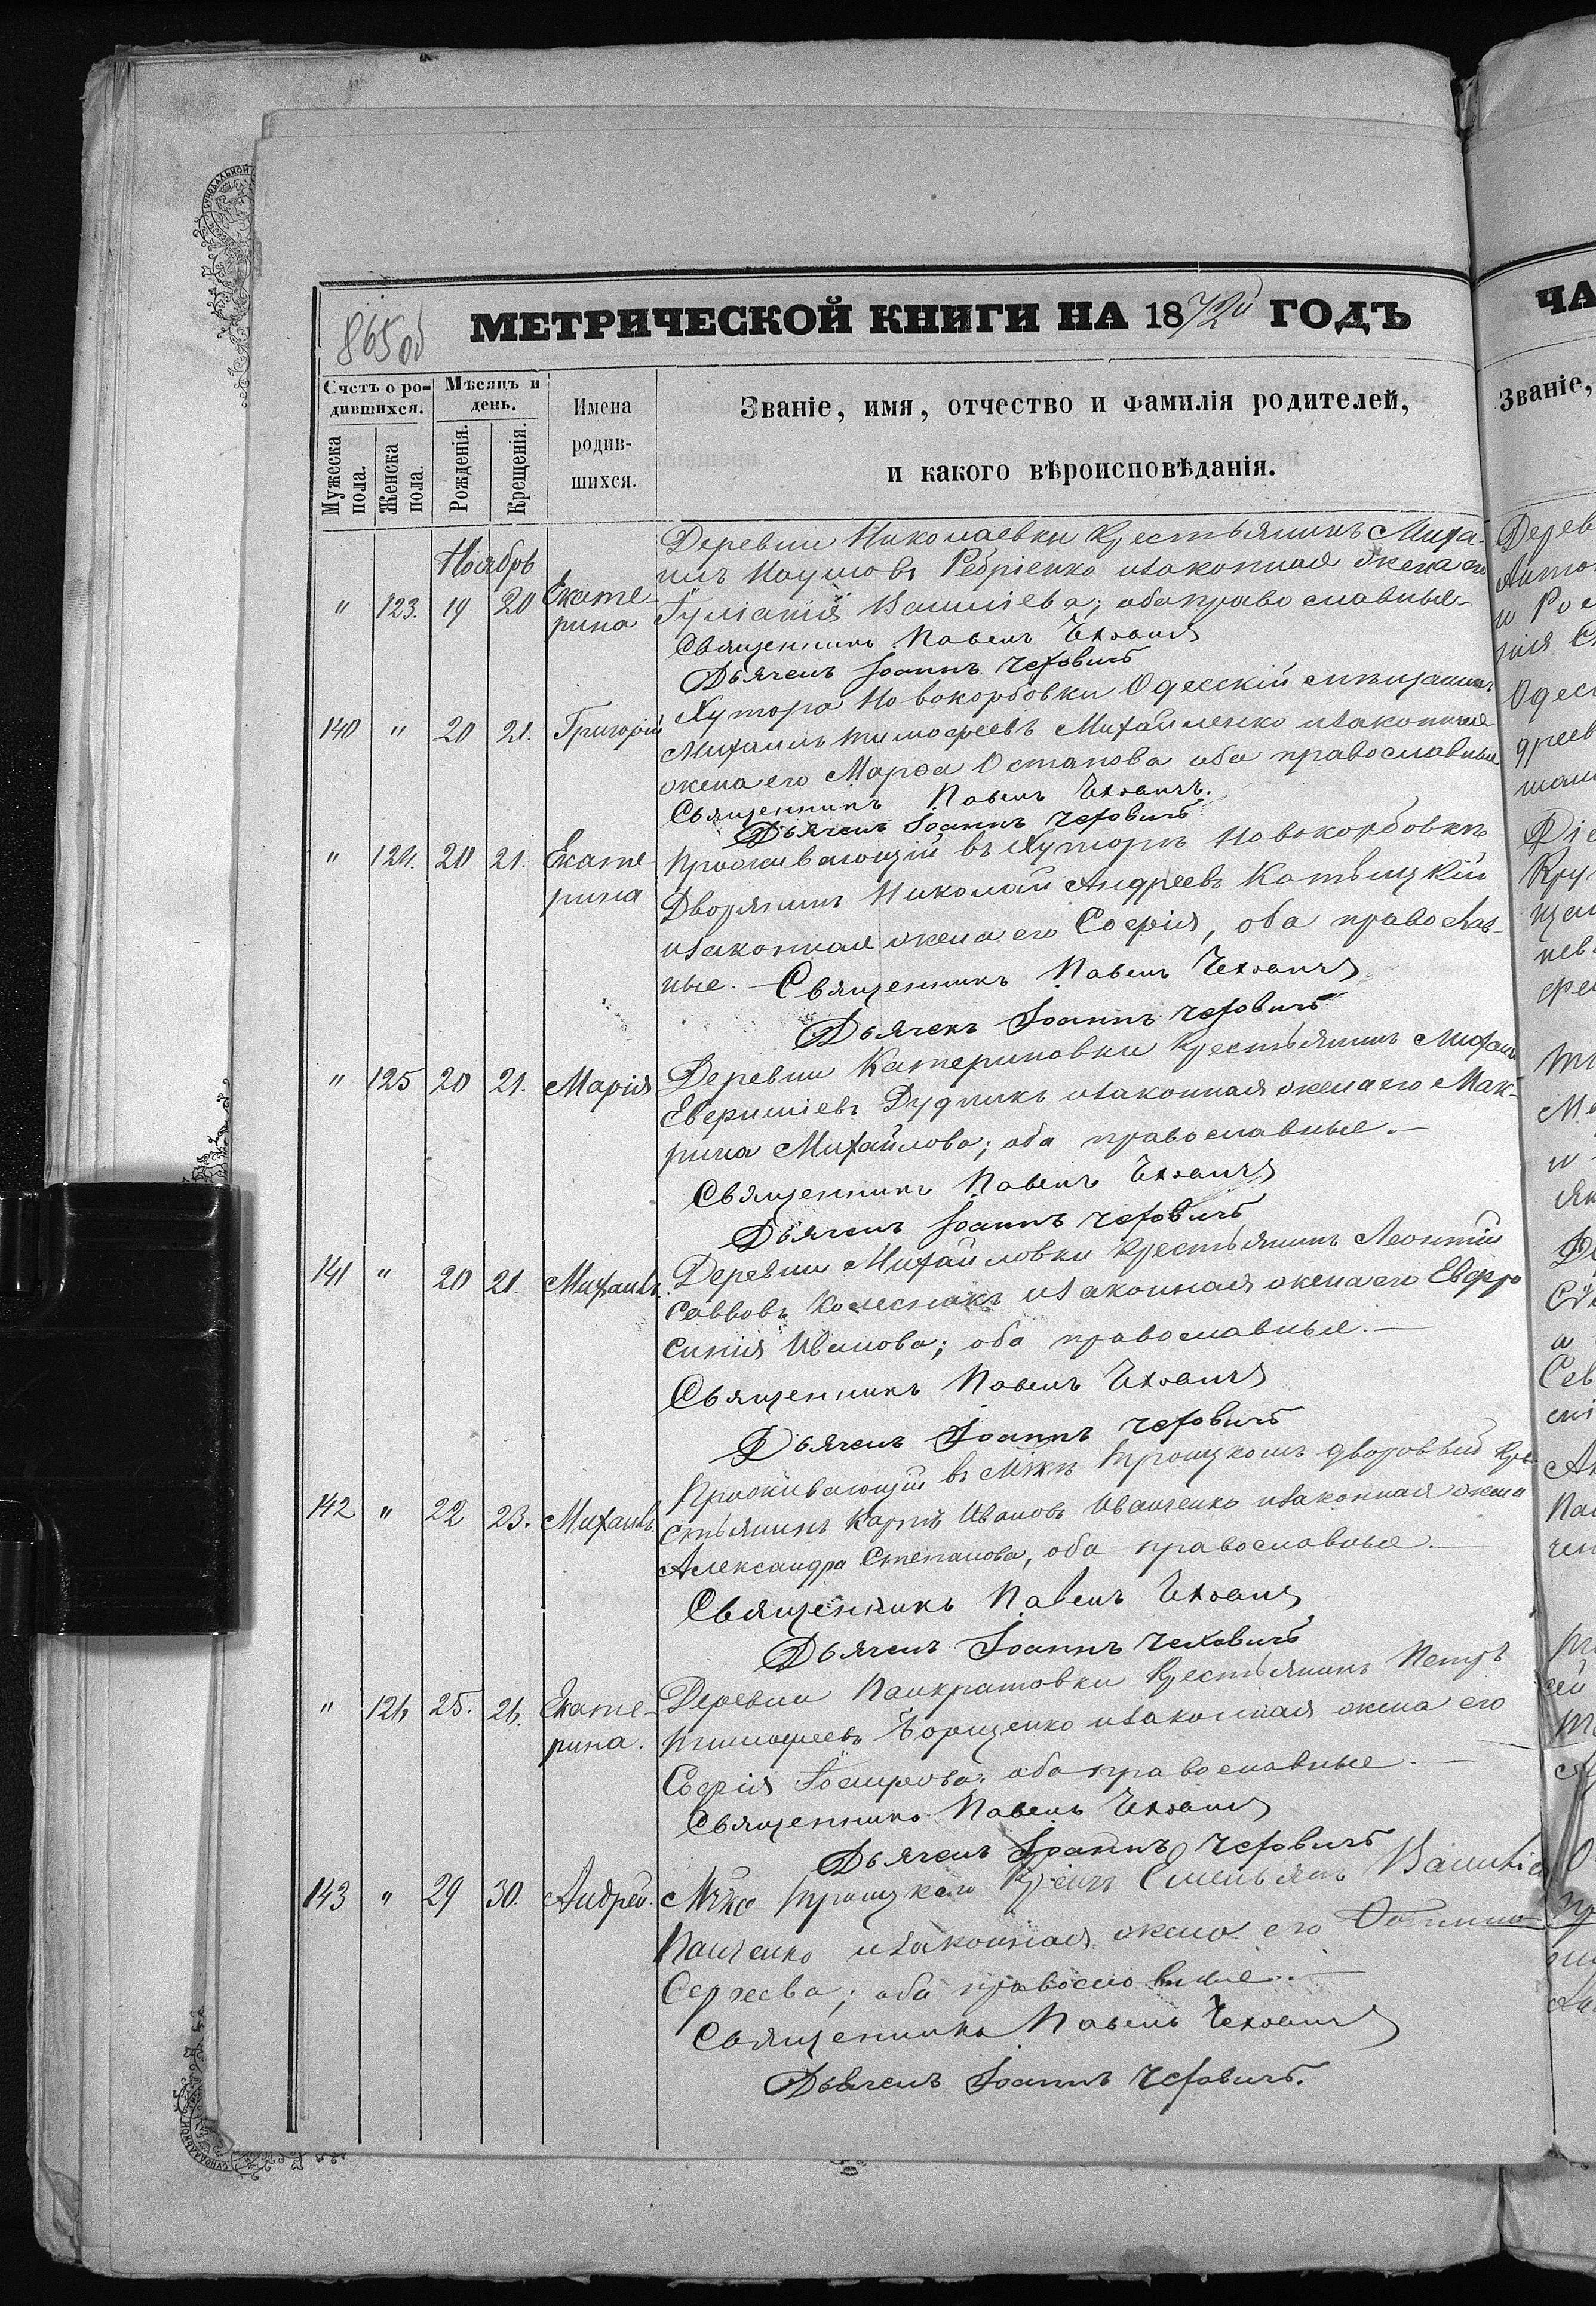 865 об
МЕТРИЧЕСКОЙ КНИГИ НА 1872й ГОДЪ
Счетъ о родившихся.
Мѣсяцъ и день.
Имена родившихся.
Званіе, имя, отчество и фамилія родителей,
и какого вѣроисповѣданія.
Мужеска пола.
Женска пола.
Рожденія.
Крещенія.
Ноябрь
" 123. 19 20 Екате-
рина
Деревни Николаевки Крестьянинъ Миха-
илъ Наумовъ Ребріенко и законная жена его
Василіева; оба православные
Священникъ Павелъ Чеховичъ
Дьячекъ Іоаннъ Чеховичъ
140 " 20 21. Григорій
Хутора Новокорбовки Одесскій мѣщанинъ
Михаилъ Тимофеевъ Михайленко и законная
жена его Марѳа Остапова оба православные
Священникъ Павелъ Чеховичъ.
Дьячекъ Іоаннъ Чеховичъ
" 124. 20 21. Екате
рина
Проживающій въ Хуторѣ Новокорбовкѣ
Дворянинъ Николай Андреевъ
и законная жена его Софія, оба православ-
ные. – Священникъ Павелъ Чеховичъ
Дьячекъ Іоаннъ Чеховичъ
" 125 20 21. Марія
Деревни Катериновки Крестьянинъ Михаилъ
Дудникъ и законная жена его Мак-
рина Михайлова; оба православные. –
Священникъ Павелъ Чеховичъ
Дьячекъ Іоаннъ Чеховичъ
141 " 20 21. Михаилъ.
Деревни Михайловки Крестьянинъ Леонтій
Саввовъ Колесникъ и законная жена его Евфро
синія Иванова; оба православные. –
Священникъ Павелъ Чеховичъ
Дьячекъ Іоаннъ Чеховичъ
142 " 22 23. Михаилъ.
Проживающій въ Мѣст. Троицкомъ дворовый Кре-
стьянинъ Карпъ Ивановъ Иванченко и законная жена
Александра Степанова, оба православные –
Священникъ Павелъ Чеховичъ
Дьячекъ Іоаннъ Чеховичъ
" 126 25. 26. Екате-
рина.
Деревни Панкратовки Крестьянинъ Петръ
Тимофеевъ и законная жена его
Софія оба православные –
Священникъ Павелъ Чеховичъ
Дьячекъ Іоаннъ Чеховичъ
143 " 29 30. Андрей.
Троицкаго Емельянъ Василіевъ
Панченко и законная жена его
Сергеева; оба православные. –
Священникъ Павелъ Чеховичъ
Дьячекъ Іоаннъ Чеховичъ.
ЧА
Званіе,